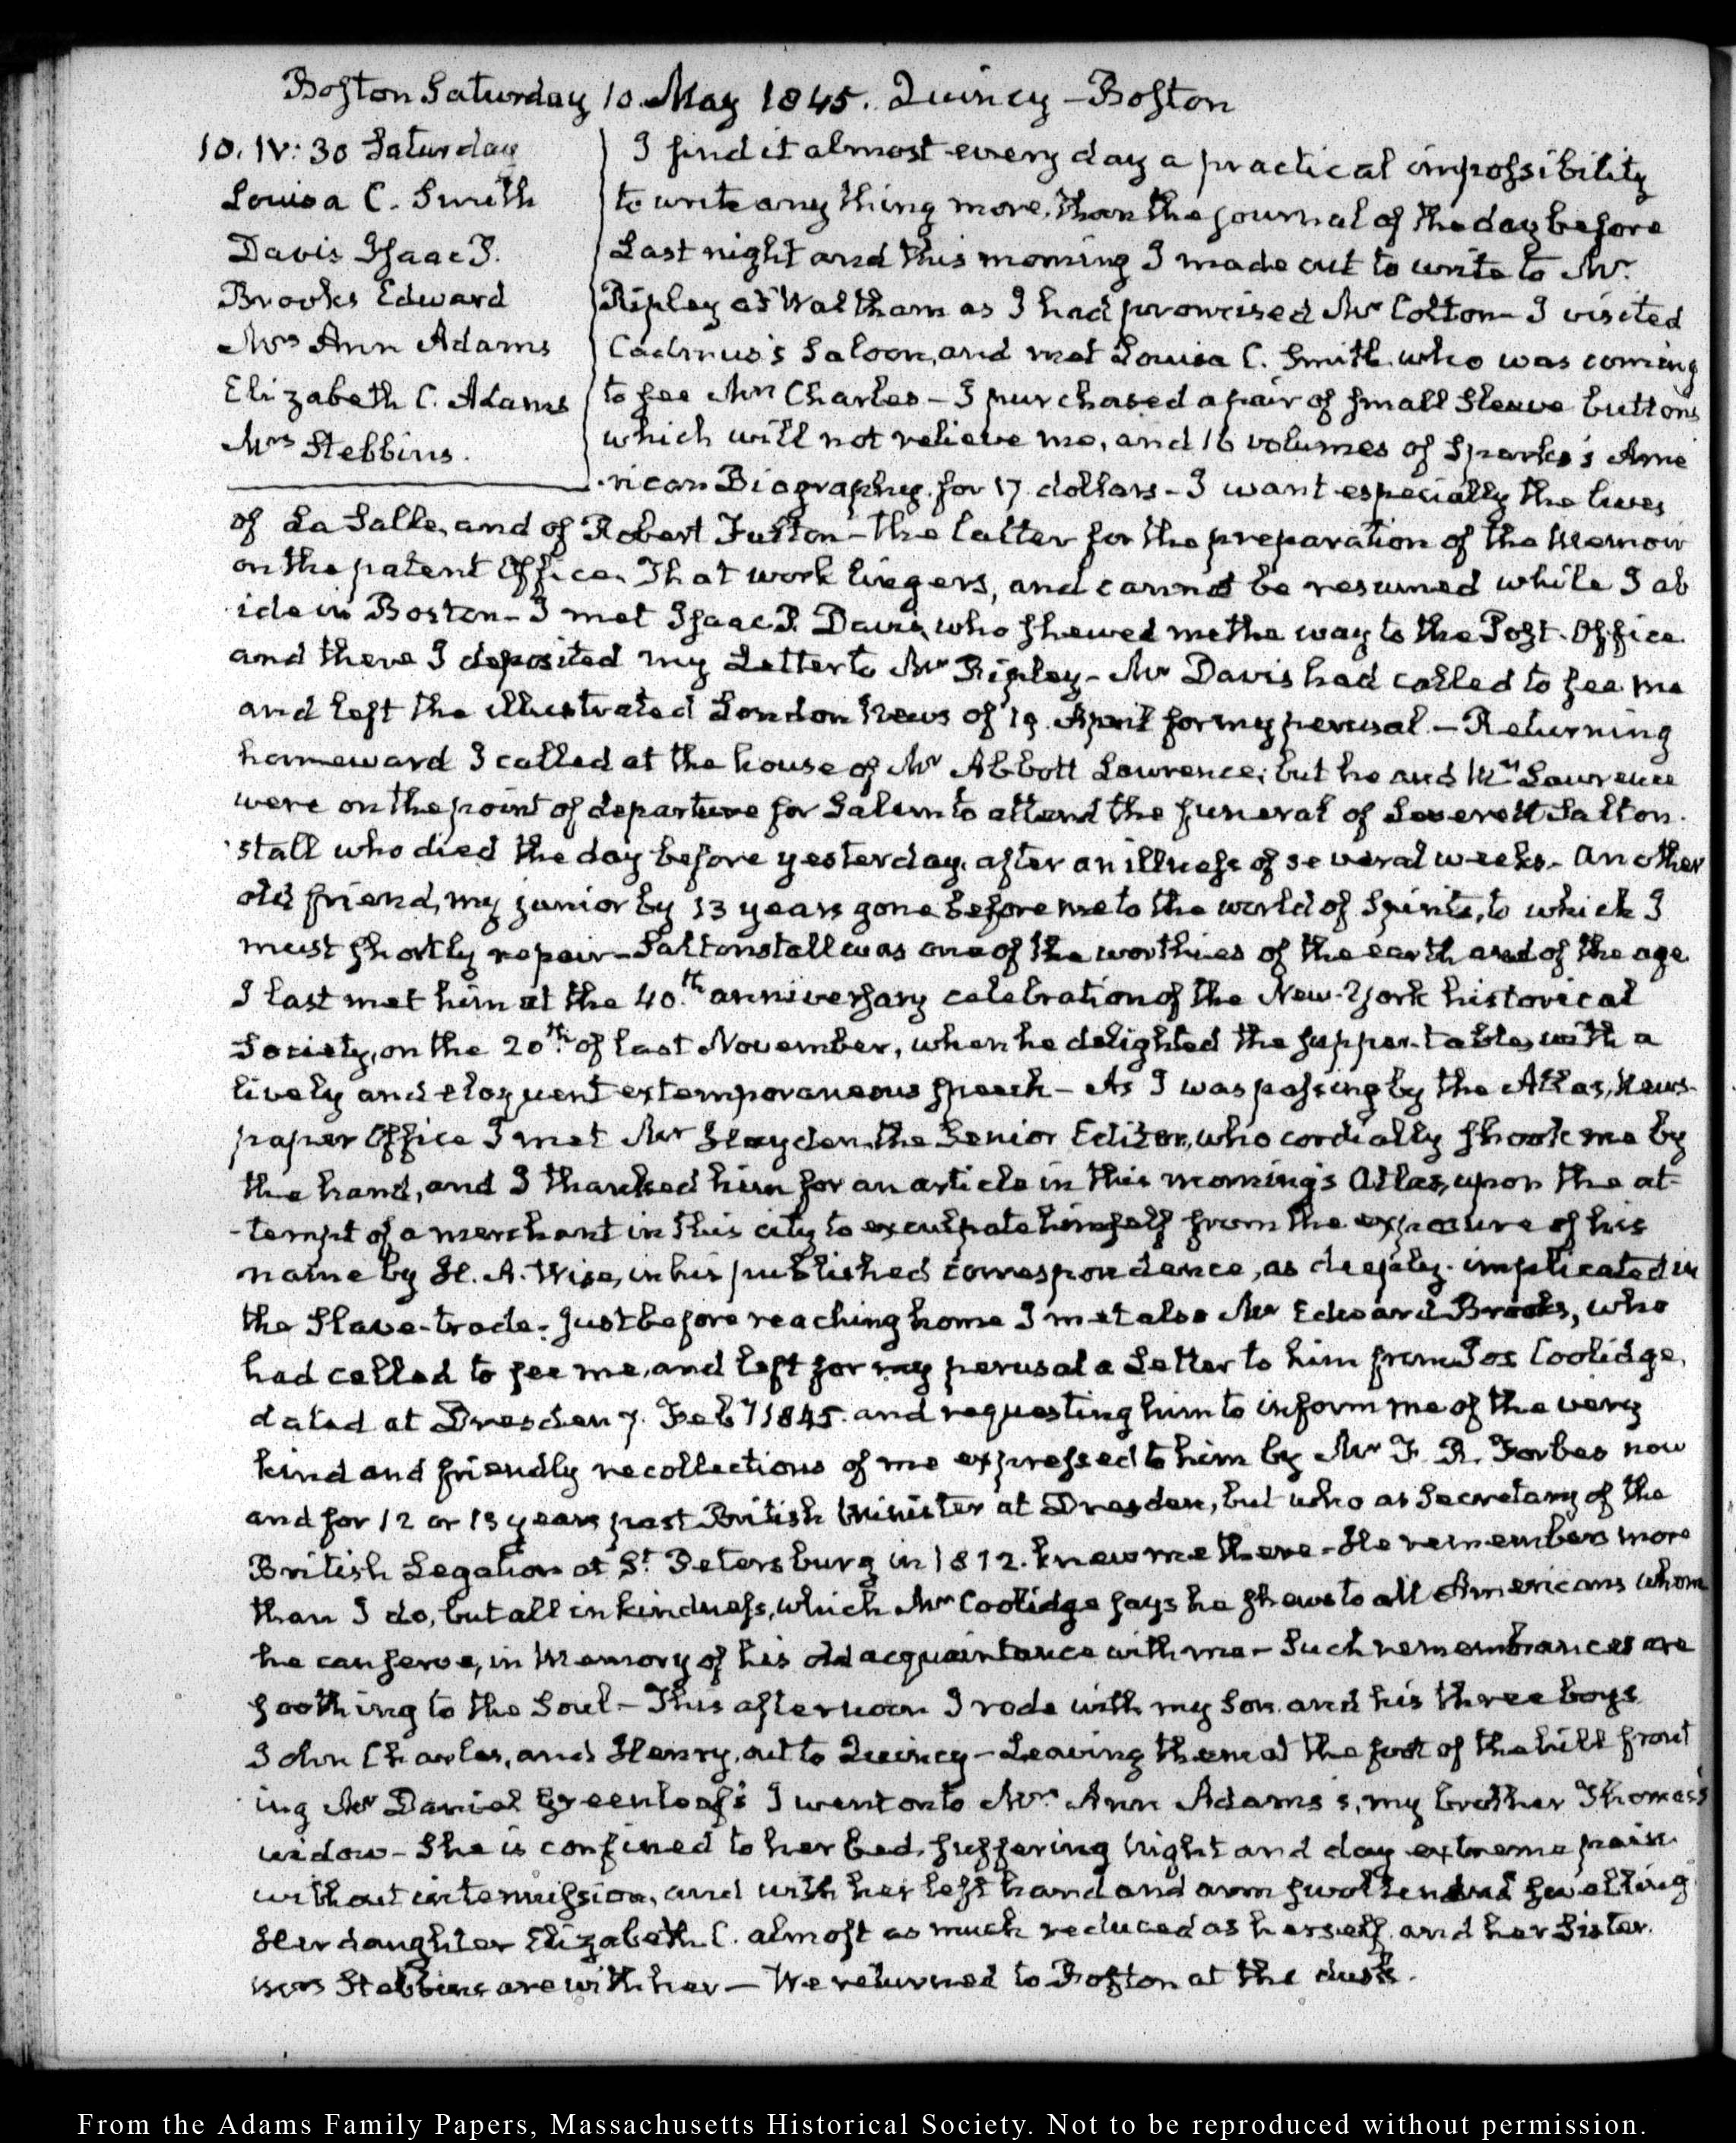 Boston Saturday 10 May 1845. Quincy – Boston
10. IV: 30 Saturday
Louisa C. Smith
Davis Isaac P.
Brooks Edward
Mrs Ann Adams
Elizabeth C. Adams
Mrs Stebbins.
I find it almost every day a practical impossibility
to write any thing more than the journal of the day before
Last night and this morning I made out to write to Mr
Ripley at Waltham as I had promised Mr Colton – I visited
Cadmus's Saloon, and met Louisa C. Smith who was coming
to see Mrs Charles – I purchased a pair of small sleeve buttons
which will not relieve me, and 16 volumes of Sparks's Ame
-rican Biography for 17 dollars – I want especially the lives
of La Salle, and of Robert Fulton – the latter for the preparation of the Memoir
on the patent Office. That work lingers, and cannot be resumed while I ab
ide in Boston – I met Isaac P. Davis, who shewed me the way to the Post-Office
and there I deposited my Letter to Mr Ripley – Mr Davis had called to see me
and left the illustrated London News of 19. April for my perusal – Returning
homeward I called at the house of Mr Abbott Lawrence; but he and Mrs Lawrence
were on the point of departure for Salem to attend the funeral of Leverett Salton-
stall who died the day before yesterday, after an illness of several weeks – another
old friend, my junior by 13 years gone before me to the world of Spirits, to which I
must shortly repair – Saltonstall was one of the worthies of the earth and of the age
I last met him at the 40.th anniversary celebration of the New-York historical
Society, on the 20th of last November, when he delighted the supper-table, with a
lively and eloquent extemporaneous speech – As I was passing by the Atlas, News-
paper Office I met Mr Hayden, the Senior Editor, who cordially shook me by
the hand, and I thanked him for an article in this morning's Atlas, upon the at-
-tempt of a merchant in this city to exculpate himself from the exposure of his
name by H. A. Wise, in his published correspondence, as deeply implicated in
the Slave-trade. Just before reaching home I met also Mr Edward Brooks, who
had called to see me, and left for my perusal a Letter to him from Jos Coolidge,
dated at Dresden 7. Feby 1845. and requesting him to inform me of the very
kind and friendly recollections of me expressed to him by Mr F. R. Forbes now
and for 12 or 13 years past British Minister at Dresden, but who as Secretary of the
British Legation at St Petersburg in 1812. knew me there – He remembers more
than I do, but all in kindness, which Mr Coolidge says he shews to all Americans whom
he can serve, in Memory of his old acquaintance with me – Such remembrances are
soothing to the Soul – This afternoon I rode with my Son and his three boys
John Charles, and Henry, out to Quincy – Leaving them at the foot of the hill front
ing Mr Daniel Greenleaf's I went on to Mrs Ann Adams's, my brother Thomas's
widow – She is confined to her bed, suffering night and day extreme pain
without intermission, and with her left hand and arm swollen and swelling
Her daughter Elizabeth C. almost as much reduced as herself, and her Sister
Mrs Stebbins are with her – We returned to Boston at the dusk.
From the Adams Family Papers, Massachusetts Historical Society. Not to be reproduced without permission.